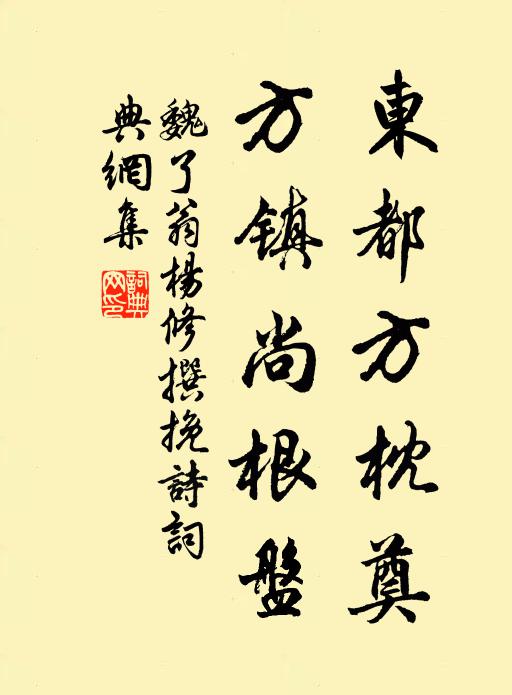 東都方枕奠
方鎮尚根盤
魏了翁楊修撰挽詩詞
典網集
詞典網印